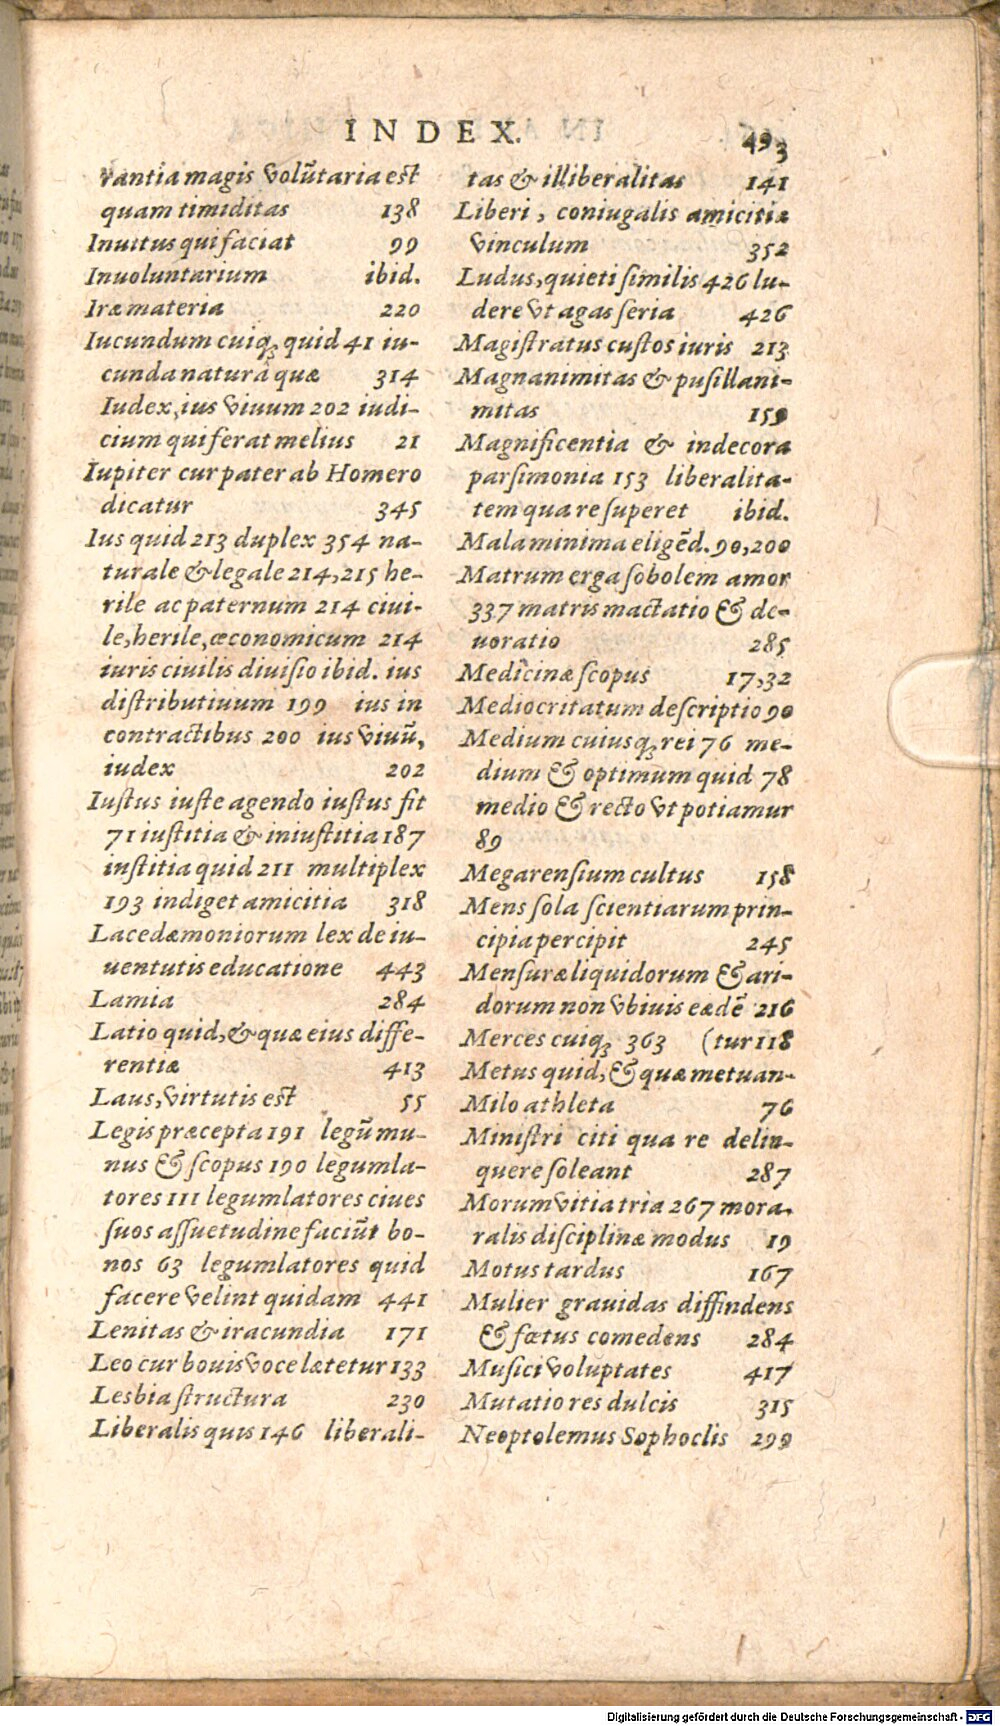 INDEX. 493
rantia magis volūtaria est
quam timiditas 138
Inuitus qui faciat 99
Inuoluntarium ibid.
Iræ materia 220
Iucundum cuiqꝫ quid 41 iu-
cunda natura quæ 314
Iudex, ius viuum 202 iudi-
cium qui ferat melius 21
Iupiter cur pater ab Homero
dicatur 345
Ius quid 213 duplex 354 na-
turale & legale 214,215 he-
rile ac paternum 214 ciui-
le, herile, œconomicum 214
iuris ciuilis diuisio ibid. ius
distributiuum 199 ius in
contractibus 200 ius viuū,
iudex 202
Iustus iuste agendo iustus fit
71 iustitia & iniustitia 187
iustitia quid 211 multiplex
193 indiget amicitia 318
Lacedæmoniorum lex de iu-
uentutis educatione 443
Lamia 284
Latio quid, & quæ eius diffe-
rentiæ 413
Laus, virtutis est 55
Legis præcepta 191 legū mu-
nus & scopus 190 legumla-
tores 111 legumlatores ciues
suos assuetudine faciūt bo-
nos 63 legumlatores quid
facere velint quidam 441
Lenitas & iracundia 171
Leo cur bouis voce lætetur 133
Lesbia structura 230
Liberalis quis 146 liberali-
tas & illiberalitas 141
Liberi, coniugalis amicitiæ
vinculum 352
Ludus, quieti similis 426 lu-
dere vt agas seria 426
Magistratus custos iuris 213
Magnanimitas & pusillani-
mitas 159
Magnificentia & indecora
parsimonia 153 liberalita-
tem qua re superet ibid.
Mala minima eligēd. 90,200
Matrum erga sobolem amor
337 matris mactatio & de-
uoratio 285
Medicinæ scopus 17,32
Mediocritatum descriptio 90
Medium cuiusqꝫ rei 76 me-
dium & optimum quid 78
medio & recto vt potiamur
89
Megarensium cultus 158
Mens sola scientiarum prin-
cipia percipit 245
Mensuræ liquidorum & ari-
dorum non vbiuis eædē 216
Merces cuiqꝫ 363 (tur 118
Metus quid, & quæ metuan-
Milo athleta 76
Ministri citi qua re delin-
quere soleant 287
Morum vitia tria 267 mora-
ralis disciplinæ modus 19
Motus tardus 167
Mulier grauidas diffindens
& fœtus comedens 284
Musici voluptates 417
Mutatio res dulcis 315
Neoptolemus Sophoclis 299
Digitalisierung gefördert durch die Deutsche Forschungsgemeinschaft - DFG